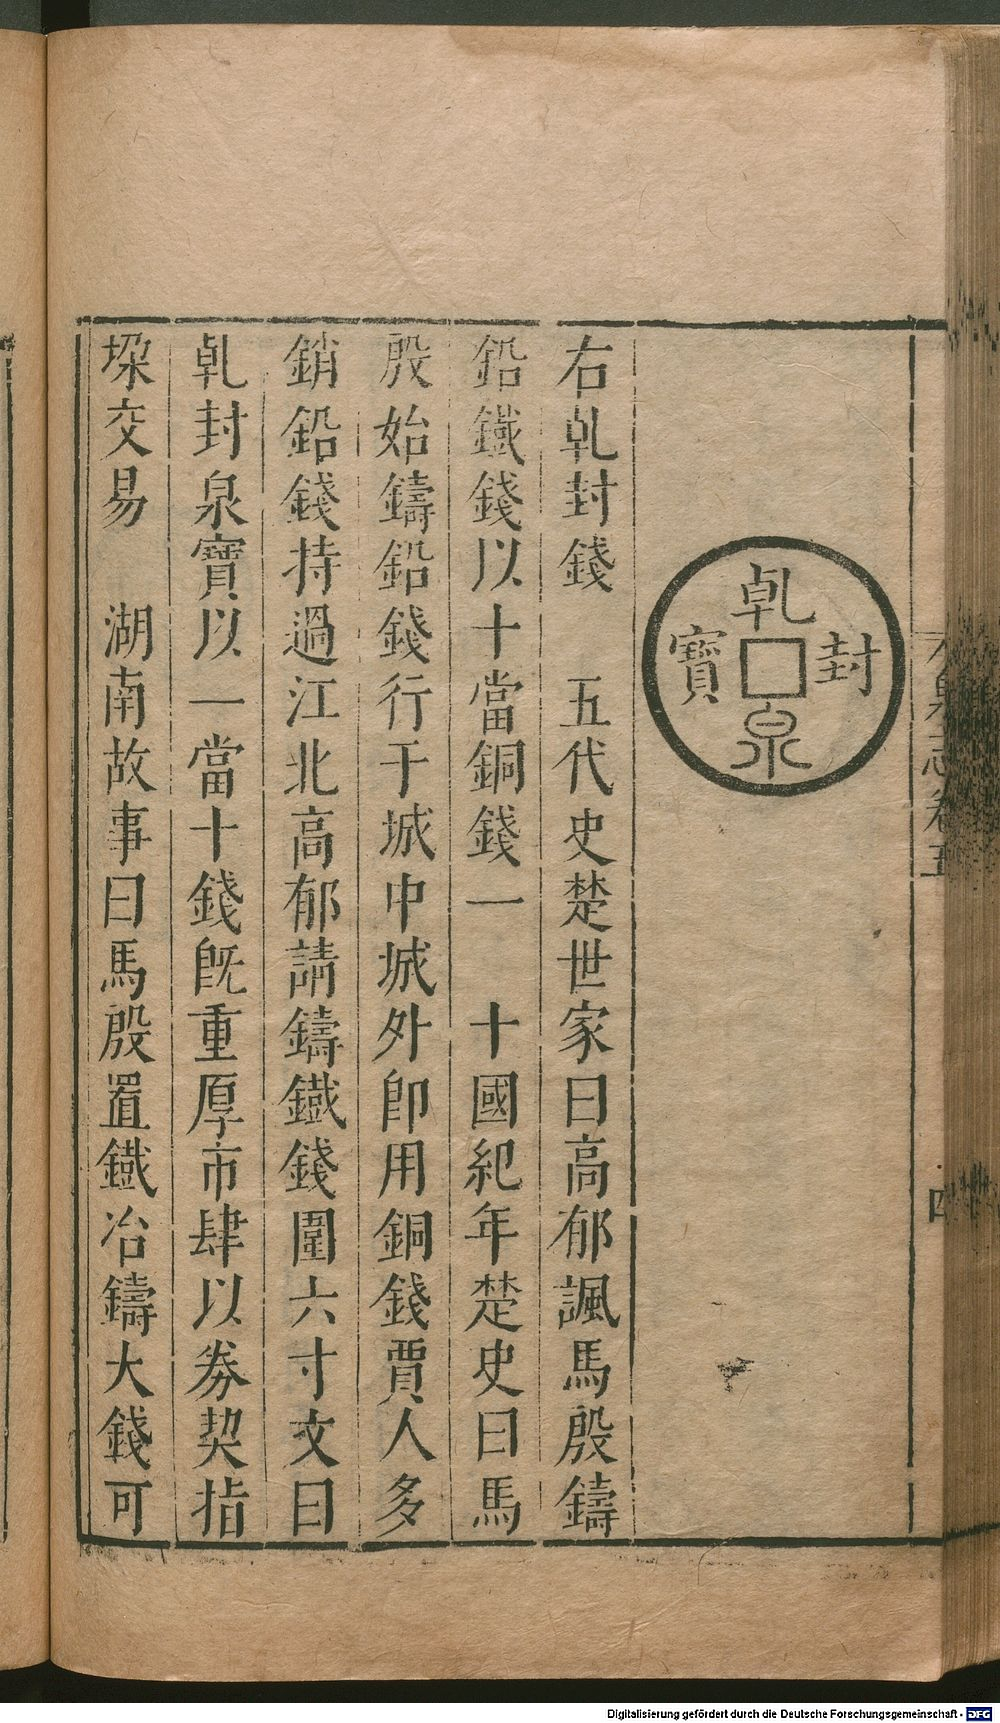 乹封泉寶
右乹封錢　五代史楚世家曰高郁諷馬殷鑄
鉛鐵錢以十當銅錢一　十國紀年楚史曰馬
殷始鑄鉛錢行于城中城外卽用銅錢賈人多
銷鉛錢持過江北高郁請鑄鐵錢圍六寸文曰
乹封泉寶以一當十錢旣重厚市肆以券契指
垜交易　湖南故事曰馬殷置鐵冶鑄大錢可
卷五
四
Digitalisierung gefördert durch die Deutsche Forschungsgemeinschaft - DFG